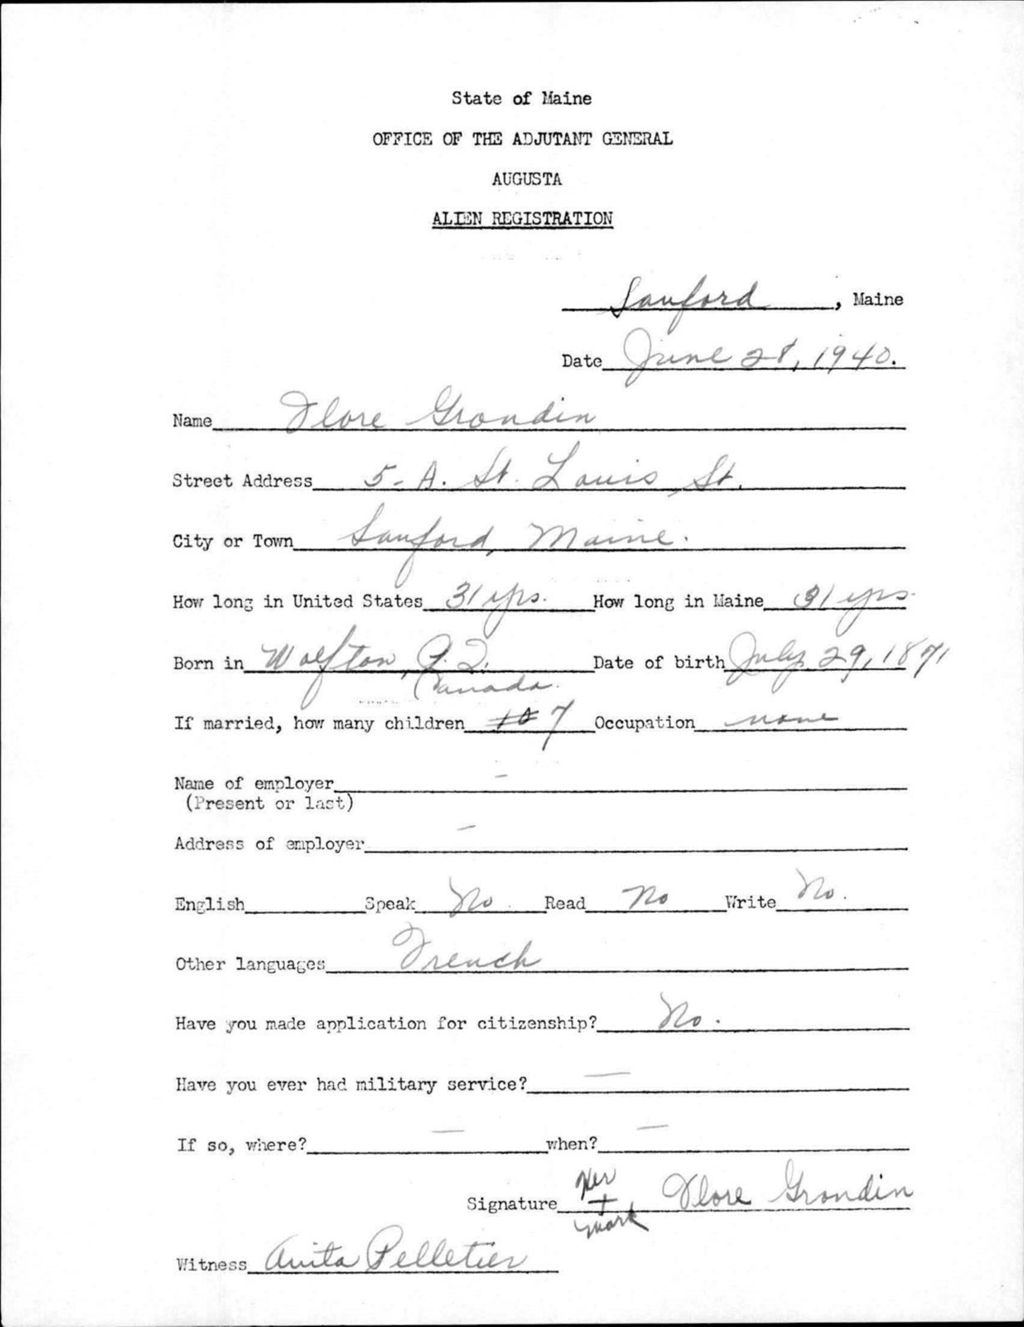 State of Maine
OFFICE OF THE ADJUTANT GENERAL
AUGUSTA
ALIEN REGISTRATION
Sanford, Maine
Date June 28, 1940.
Name Flore Grondin
Street Address 5-A. St. Louis St.
City or Town Sanford, Maine.
How long in United States 31 yrs. How long in Maine 31 yrs.
Born in Wolfton, P.Q. Date of birth July 29, 1871
Canada.
If married, how many children 7 Occupation none
Name of employer -
(Present or last)
Address of employer -
English Speak No. Read No Write No.
Other languages French
Have you made application for citizenship? No.
Have you ever had military service? -
If so, where? - when? -
Her
Signature + Flore Grondin
mark
Witness Anita Pelletier